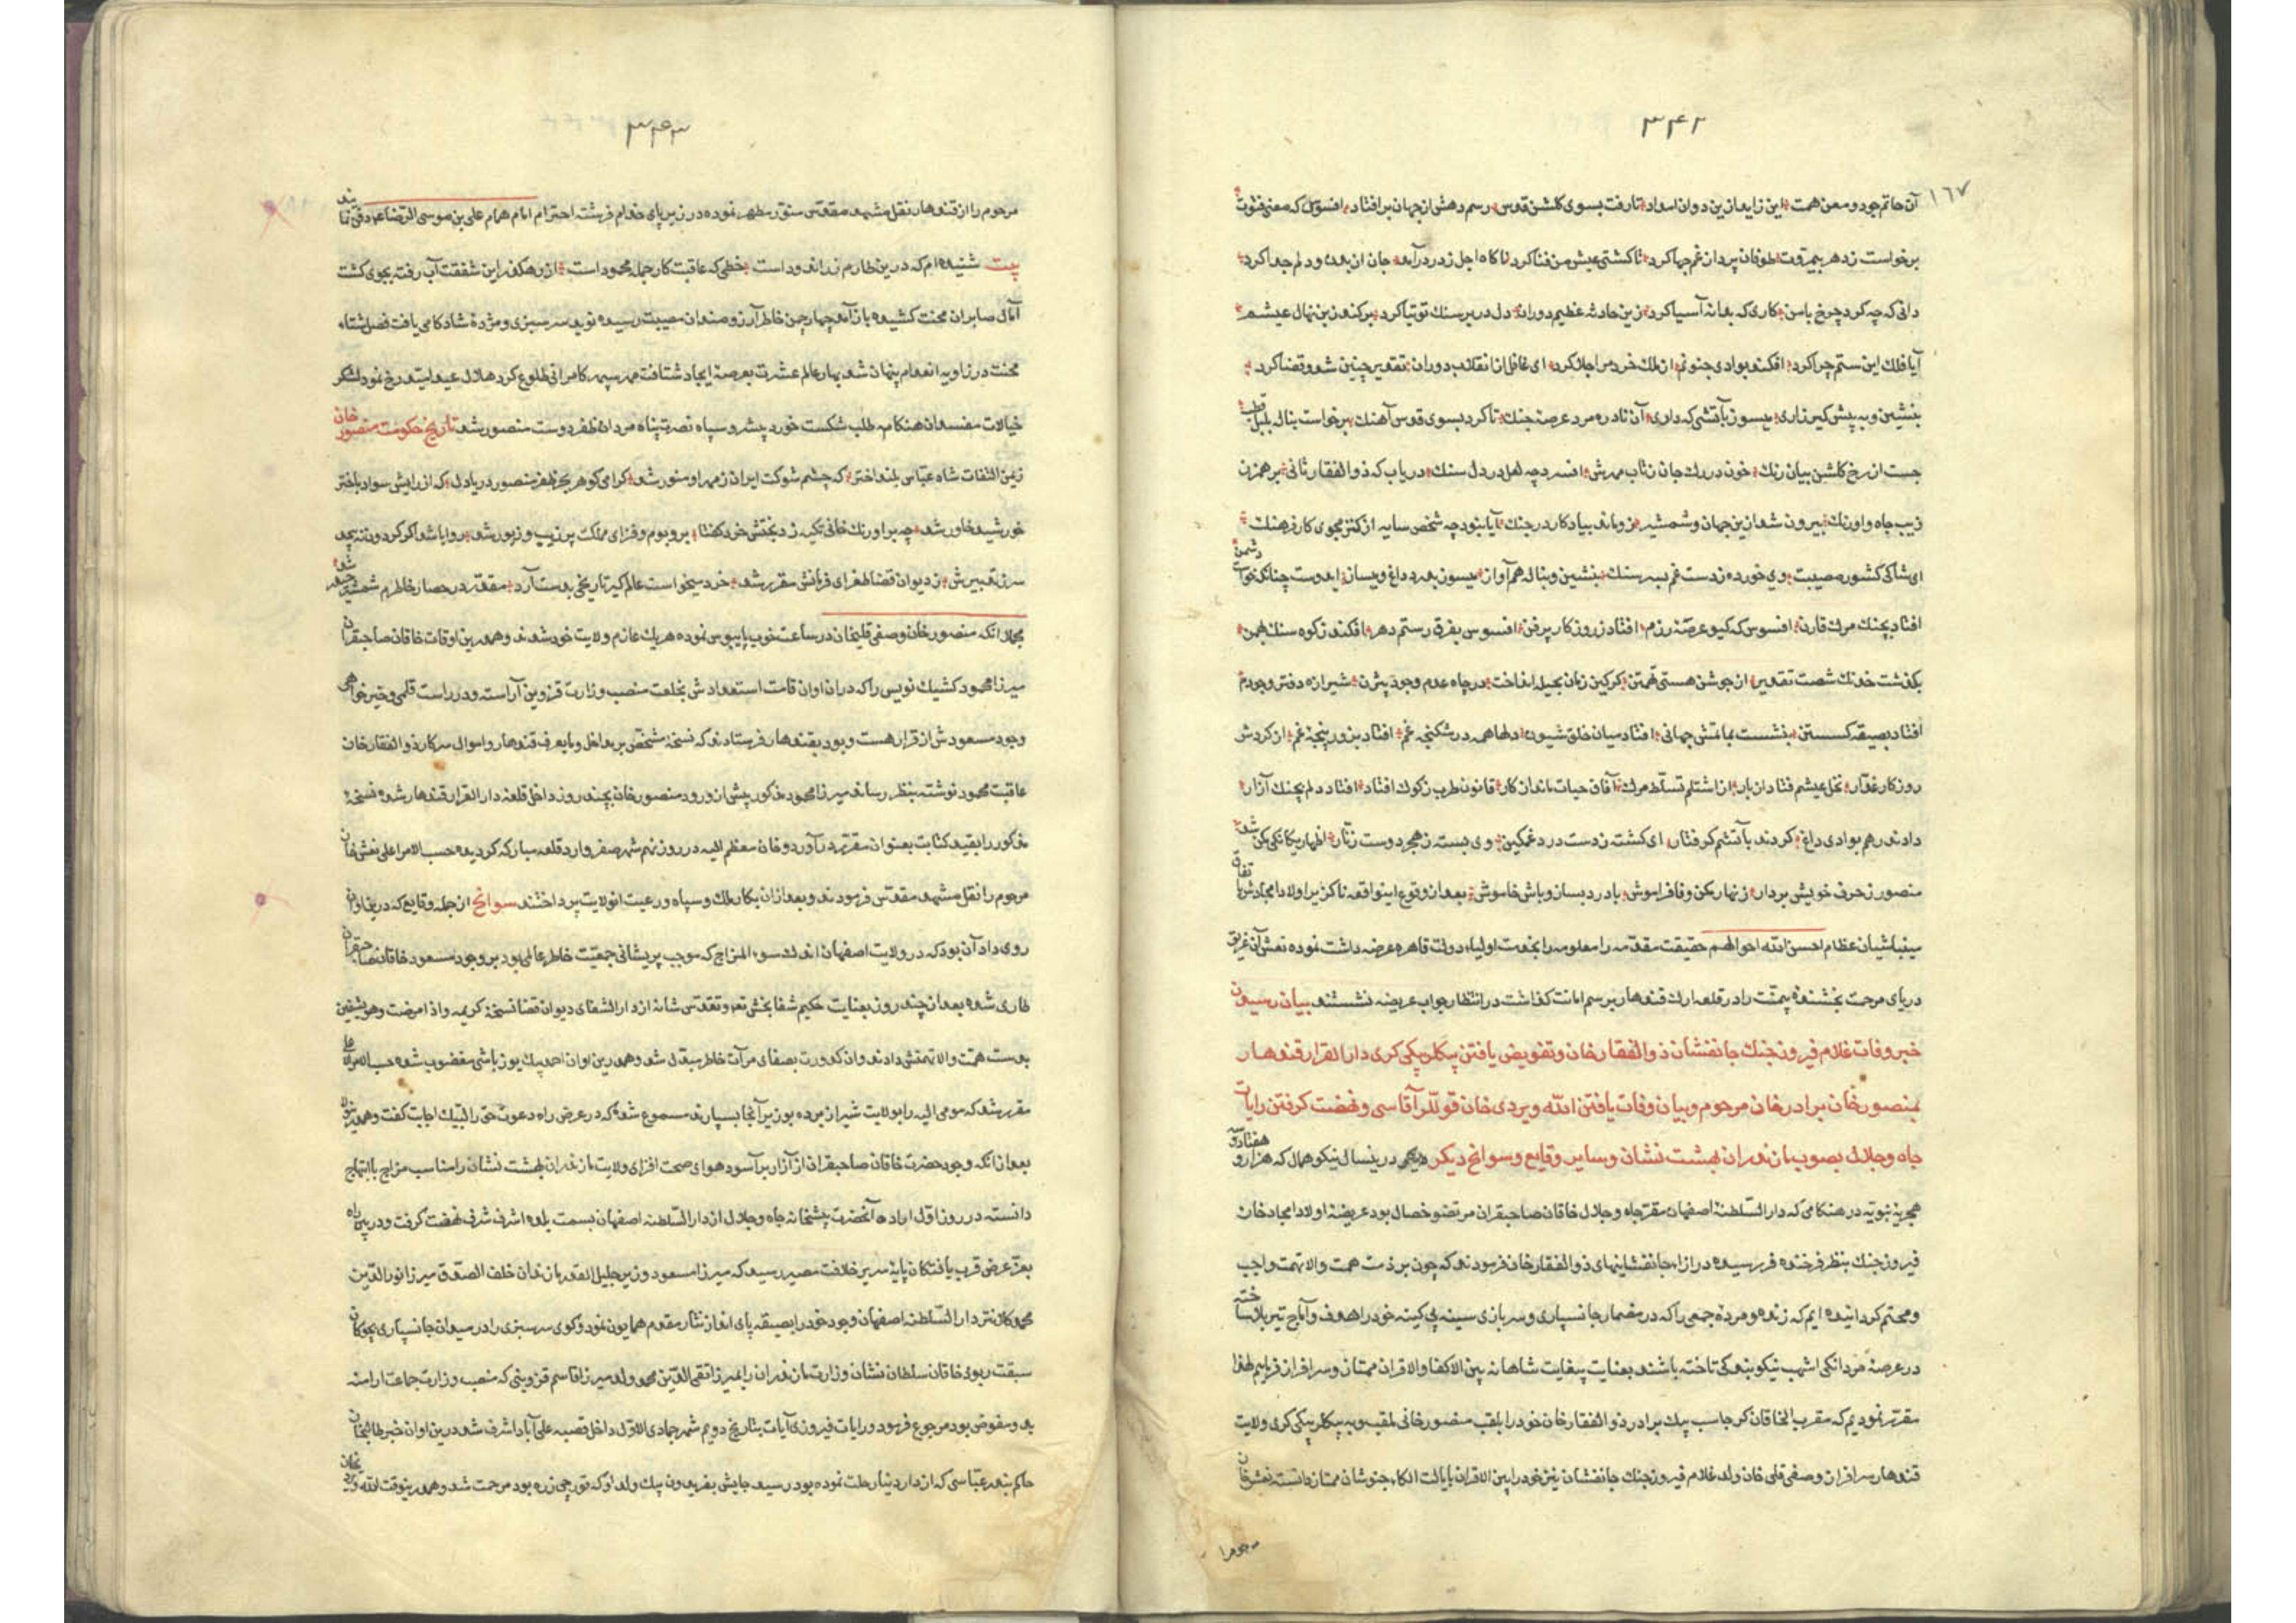 ۳۴۲
۱۶۷
آن حاتم جود و معن همت این زاید ازین دو ان امداد تا رفت بسوی کلشن قدس رسم دهش از جهان برافتاد افسوس که معنی فتوت
برخواست ز دهر بیمروت طوفان پر دازغم جها کرد تا کشتی عیش من فنا کرد نا کاه اجل ز در درآمد جان از بدن و دلم جدا کرد
دانی که چه کرد چرخ با من کاری که بدانه آسیا کرد زین حادثه عظیم دوران دل در بر سنک توتیا کرد برکند ز بن نهال عیشم
آیا فلک این ستم چرا کرد افکند بوادی جنونم از ملک خرد مرا جلا کرد ای غافل از انقلاب دوران تقدیر چنین شد و قضا کرد
بنشین و به پیش کیر زاری میسوز بآتشی که داری آن نادره مرد عرصه جنک تا کرد بسوی قدس آهنک برخواست بناله بلبل
جست از رخ کلشن بیان رنک خون در رک جان ز تاب مهرش افسرد چه لعل در دل سنک دریاب که ذوالفقار ثانی بر همزن
زیب جاه و اورنک بیرون شد ازین جهان و شمشیر زو ماند بیادکار در جنک آیا بنود چه شخص سایه از کنز مجوی کار فرهنک
ای شاکی کشور مصیبت وی خورده ز دست غم بسر سنک بنشین و بناله هم آواز میسوز بدرد داغ و میساز ایدوست چنانکه خواست دشمن
افتاد بچنک مرک قارن افسوس که کیو عرصه رزم افتاد ز روزکار پر فن افسوس بفرق رستم دهر افکند ز کوه سنک بهمن
بکذشت خدنک شصت تقدیر از جوشن هستی تهمتن کرکین زمان بحیله انداخت در چاه عدم وجود بیژن شیرازه دفتر وجودم
افتاد بصیقه کسستن بنشست بماتمش جهانی افتاد میان خلق شیون دلها همه در شکنجه غم افتاد بزور پنجه غم از کردش
روزکار غدار نخل عیشم فتاد از بار از اشتلم تسلط مرک آفاق حیات ماند از کار قانون طرب ز کوک افتاد افتاد دلم بچنک آزار
دادند رهم بوادی داغ کردند بآتشم کرفتار ای کشته ز دست درد غمکین وی بسته ز هجر دوست زنار اظهار یکانکی مکن شد
منصور ز حرف خویش بردار زنهار مکن وفا فراموش با درد بساز و باش خاموش بعد از وقوع اینواقعه ناکزیر اولاد امجاد
مینباشیان عظام احسن الله احوالهم حقیقت مقدمه را معلومه را بخدمت اولیاء دولت قاهره عرضه داشت نموده نعش آن غریق
دریای مرحمت بخشنده بیمنت را در قلعه ارک قندهار برسم امانت کذاشت در انتظار جواب عریضه نشستند بیان رسیدن
خبر وفات غلام فیروز جنک جانفشان ذوالفقار خان و تفویض یافتن بیکلربیکی کری دارالقرار قندهار
بمنصور خان برادر خان مرحوم و بیان وفات یافتن الله ویردی خان قوللر آقاسی و نهضت کرفتن رایات
جاه و جلال بصوب مازندران بهشت نشان و سایر وقایع و سوانح دیکر درینسال نیکو همال که هزار و هفتاد و سه
هجریه نبویه در هنکامی که دار السلطنة اصفهان مقر جاه و جلال خاقان صاحبقران مرتضو خصال بود عریضة اولاد امجاد خان
فیروز جنک بنظر فرخنده فر رسیده در ازاء جانفشاینهای ذوالفقار خان فرمودند که چون بر ذمت همت والا نهمت واجب
و محتم کردانیده ایم که زنده و مرده جمعی را که در مضمار جانسپاری و سربازی سینه بی کینه خود را هدف و آماج تیر بلا ساخته
در عرصه مردانکی اشهب نیکو بندکی تاخته باشند بعنایت بیغایت شاهانه بین الاکفا و الاقران ممتاز و سرافراز فرمایم لهذا
مقرر نمودیم که مقرب الخاقان کرجاسب بیک برادر ذوالفقار خان خود را بلقب منصور خانی ملقب و به بیکلربیکی کری ولایت
قندهار سرافراز و صفی قلی خان ولد غلام فیروز جنک جانفشان نیز خود را بین الاقران بایالت الکاء خبوشان ممتاز دانسته نعش خان
مرحوم را
۳۴۳
مرحوم را از قندهار نقل مشهد مقدس منور مطهر نموده در زیر پای خدام فرشته احترام امام همام علی بن موسی الرضا مدفون نمایند
بیت شنیده ام که درین طارم زر اندود است خطی که عاقبت کار جمله محمود است از رهکذر این شفقت آب رفته بجوی کشت
آمال صابران محنت کشیده باز آمد چهار چمن خاطر آرزومندان مصیبت رسیده نوید سرسبزی و مژدۀ شادکامی یافت فصل شتاء
محنت در زاویه انعدام پنهان شد بهار عالم عشرت بعرصه ایجاد شتافت مهر سپهر کامرانی طلوع کرد هلال عید امید رخ نمود لشکر
خیالات مفسدان هنکامه طلب شکست خورد چشر و سپاه نصرت پناه مردان ظفر دوست منصور شد تاریخ حکومت منصور خان
زیمن التفات شاه عباس بلند اختر که چشم شوکت ایران ز مهر او منور شد کرامی کوهر بحر ظفر منصور دریا دل که از رایش سواد باختر
خورشید خاور شد چه بر اورنک خانی تکیه زد بختش خرد کفتا بر و بوم و فزای مملکت پر زیب و زیور شد روا باشد اکر کردون نه پیچد
سر ز تدبیرش ز دیوان قضا طغرای فرمانش مقرر شد خرد میخواست عالمکیر تاریخی بدست آرد مقدر در حصار خاطرم شمشیر حیدر شد
مجملا انکه منصور خان و صفی قلیخان در ساعت خوب پایبوس نموده هریک عازم ولایت خود شدند و همدرین اوقات خاقان صاحبقران
میرزا محمود کشیک نویس را که دران اوان قامت استعدادش بخلعت منصب وزارت قزوین آراسته و در راست قلمی و خیر خواهی
وجود مسعودش از قرار هست و بود بقندهار فرستادند که نسخة مشخص بر مداخل و مایعرف قندهار و اموال سرکار ذوالفقار خان
عاقبت محمود نوشته بنظر رساند میرزا محمود مذکور پیش از ورود منصور خان بچند روز داخل قلعه دار القرار قندهار شده نسخه
مذکور را بقید کتابت بعنوان مقرر درآورد و خان معظم الیه در روز نهم شهر صفر وارد قلعه مبارکه کردیده حسب الامر اعلی نعش خان
مرحوم را نقل مشهد مقدس فرمودند و بعد ازان بکار ملک و سپاه و رعیت انولایت پرداختند سوانح از جمله وقایع که درین اوان
روی داد آن بود که در ولایت اصفهان اندک سوء المزاج که موجب پریشانی جمعیت خاطر عالمی بود بر وجود مسعود خاقان صاحبقران
طاری شده بعد از چند روز بعنایت حکیم شفا بخش تعز و تقدس شانه از دار الشفای دیوان قضا نسخة کریمه و اذا مرضت و هو یشفین
بدست همت والا نهمتش دادند و ان کدورت بصفای مرآت خاطر مبدل شد و همدرین اوان احمد بیک یوزباشی مغضوب شده حسب الامر اعلی
مقرر شد که مومی الیه را بولایت شیراز برده بوزیر آنجا بسپارند مسموع شد که در عرض راه دعوت حق را لبیک اجابت کفت و همدرین
بعد از انکه وجود حضرت خاقان صاحبقران از آزار برآسود هوای صحت افزای ولایت مازندران بهشت نشان را مناسب مزاج با ابتهاج
دانسته در روز اول اباد ماه آنحضرت پیشخانه جاه و جلال از دار السلطنه اصفهان بسمت بلده اشرف شرف نهضت کرفت و در بین راه
بعز عرض قرب یافتکان پایة سریر خلافت مصیر رسید که میرزا مسعود وزیر جلیل القدر مازندران خلف الصدق میرزا نورالدین
محمد کلانتر دار السلطنه اصفهان وجود خود را بصیقه پای انداز نثار مقدم همایون نمود و کوی سرسبزی را در میدان جانسپاری بچوکان
سبقت ربود خاقان سلطان نشان وزارت مازندران را بمیرزا تقی الدین محمد ولد میرزا قاسم قزوینی که منصب وزارت جماعت ارامنه
بدو مفوض بود مرجوع فرمود و رایات فیروزی آیات بتاریخ دویم شهر جمادی الاول داخل قصبه علی آباد اشرف شد درین اوان خبر
حاکم بندر عباسی که از دار دنیا رحلت نموده بود رسید جایش بفریدون بیک ولد او که قورچی زره بود مرحمت شد و همدرینوقت الله ویردیخان